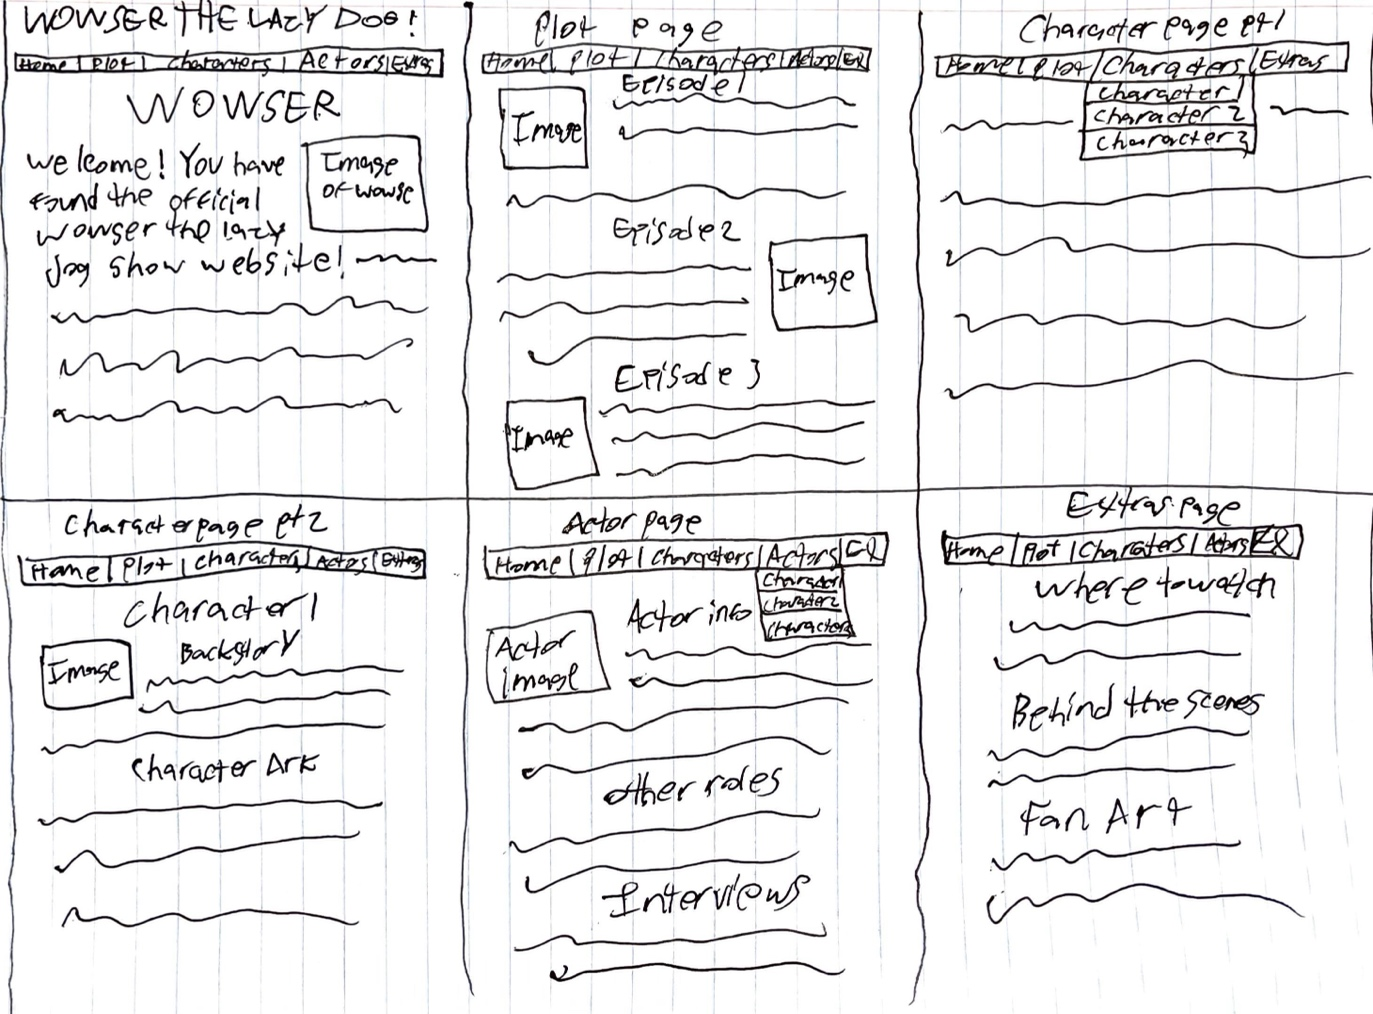 WOWSER THE LAZY DOG!
Home | Plot | Characters | Actors | Extras
WOWSER
Welcome! You have
found the official
wowser the lazy
dog show website!
Image
of wowse
Plot Page
Home | Plot | Characters | Actors | EX
Episode 1
Image
Episode 2
Image
Episode 3
Image
Character page pt1
Home | Plot | Characters | Extras
Character 1
Character 2
Character 3
Character page pt2
Home | Plot | Characters | Actors | Extras
Character 1
Image
Backstory
Character Ark
Actor page
Home | Plot | Characters | Actors | EX
Character1
Character2
Character3
Actor info
Actor
image
other roles
Interviews
Extras page
Home | Plot | Charaters | Actors | EX
Where to watch
Behind the scenes
Fan Art